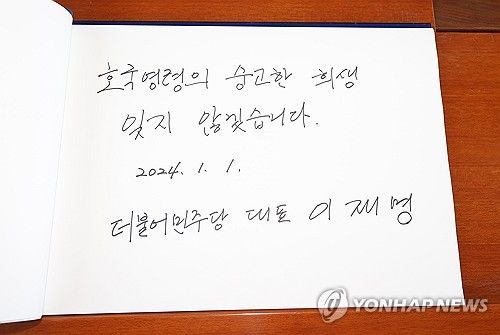 호국영령의 숭고한 희생
잊지 않겠습니다.
2024. 1. 1.
더불어민주당 대표 이재명
YONHAP NEWS